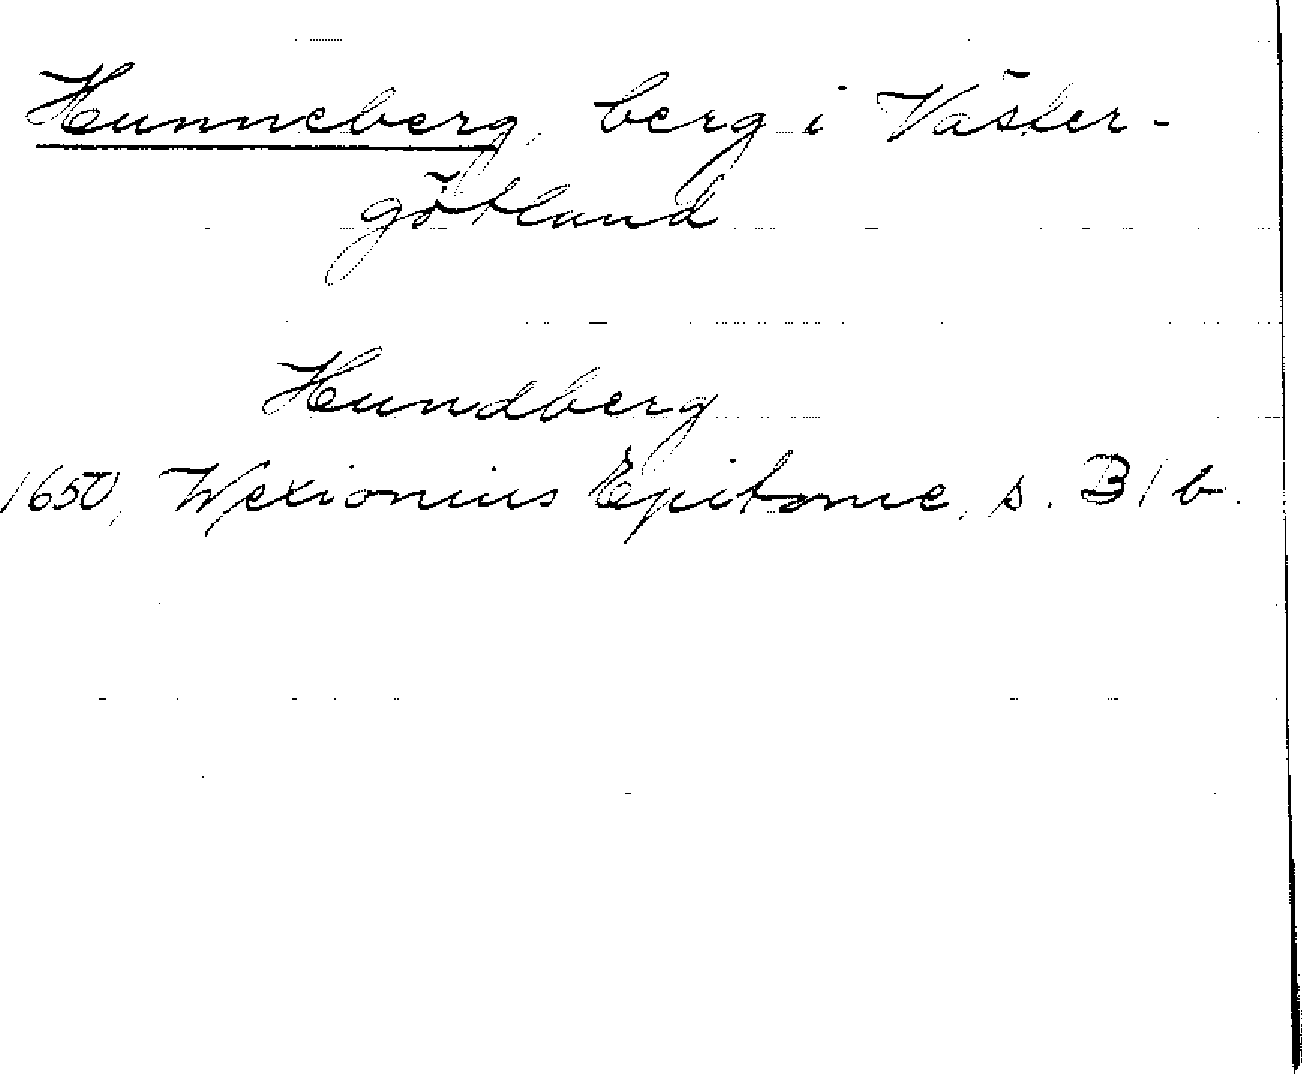 Hunneberg, berg i Väster-
götland
Hundberg
1650, Wexionius Epitome, s. B1b.